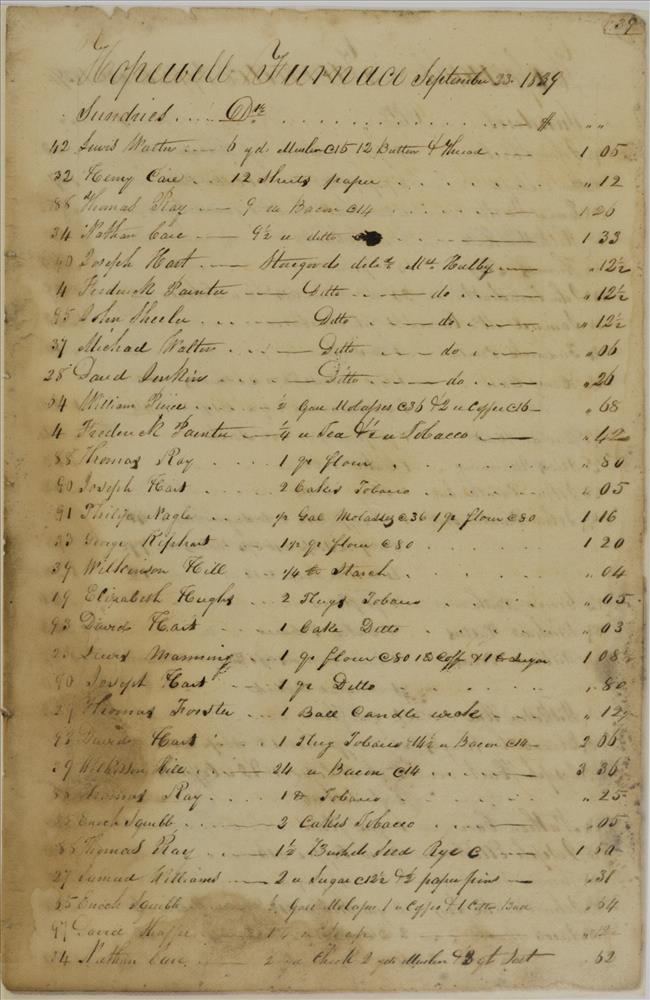 39
Hopewell Furnace September 23. 1829
Sundries Drs $ ""
42 Lewis Walter 6 yds Muslin @15 12 Button & thread 1 05
32 Henry Care 12 Sheets paper " 12
88 Thomas Ray 9 u Bacon @14 1 26
34 Nathan Care 9½ u ditto 1 33
90 Joseph Hart Storegoods Mrs " 12½
4 Frederick Painter Ditto do " 12½
95 John Sheeler Ditto do " 12½
37 Michael Walter Ditto do " 06
28 David Jenkins Ditto do " 26
64 William ½ Gall Molasses @36 & 2 u Coffee @16 " 68
4 Frederick Painter ¼ u Tea & ½ u Tobacco " 42
88 Thomas Ray 1 qr flour " 80
90 Joseph Hart 2 Cakes Tobacco " 05
91 Philip Nagle Gal Molasses @36 1 qr flour @80 1 16
33 George Kiphart qr flour @80 1 20
39 Wilkinson Hill ¼ lb Starch " 04
19 Elizabeth Hughs 2 Plugs Tobacco " 05
93 David Hart 1 Cake Ditto " 03
Lewis Manning 1 qr flour @80 1 lb Coff & 1 lb Sugar 1 08½
90 Joseph Hart 1 qr Ditto " 80
29 Thomas Forster 1 Ball Candle wick " 12½
93 David Hart 1 Plug Tobacco 14½ u Bacon @14 2 06
39 Wilkinson Hill 24 u Bacon @14 3 36
88 Thomas Ray 1 lb Tobacco " 25
85 Enoch Squibb 2 Cakes Tobacco " 05
88 Thomas Ray 1½ Bushels Seed Rye @ 1 50
27 Samuel Williams 2 u Sugar @12½ & ½ paper pins " 31
85 Enoch Squibb ½ Gall Molasses 1 u Coffee & 1 Cotton " 54
97 David Soap " 12
34 Nathan Care 2 yd Check 2 yds Muslin & 3 62